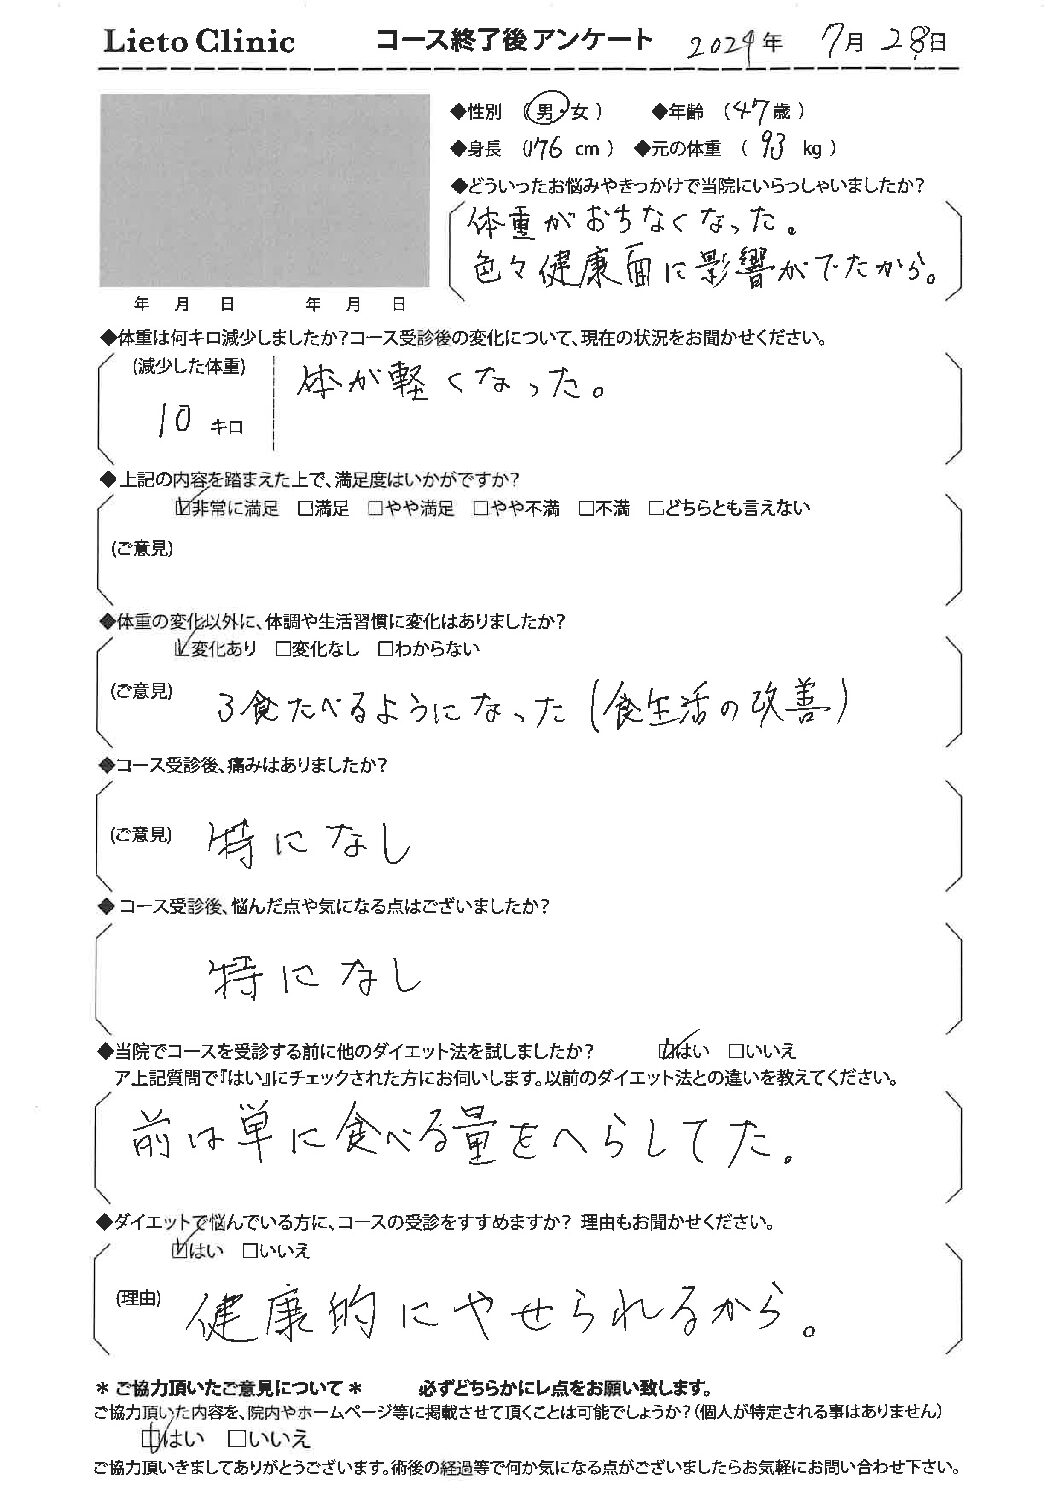 Lieto Clinic コース終了後アンケート 2024年 7月 28日
◆性別 (男・女) ◆年齢 (47歳)
◆身長 (176 cm) ◆元の体重 (93 kg)
◆どういったお悩みやきっかけで当院にいらっしゃいましたか?
体重がおちなくなった。
色々健康面に影響がでたから。
年 月 日 年 月 日
◆体重は何キロ減少しましたか?コース受診後の変化について、現在の状況をお聞かせください。
(減少した体重) 体が軽くなった。
10 キロ
◆上記の内容を踏まえた上で、満足度はいかがですか?
☑非常に満足 □満足 □やや満足 □やや不満 □不満 □どちらとも言えない
(ご意見)
◆体重の変化以外に、体調や生活習慣に変化はありましたか?
☑変化あり □変化なし □わからない
(ご意見) 3食たべるようになった(食生活の改善)
◆コース受診後、痛みはありましたか?
(ご意見) 特になし
◆コース受診後、悩んだ点や気になる点はございましたか?
特になし
◆当院でコースを受診する前に他のダイエット法を試しましたか? ☑はい □いいえ
ア上記質問で『はい』にチェックされた方にお伺いします。以前のダイエット法との違いを教えてください。
前は単に食べる量をへらしてた。
◆ダイエットで悩んでいる方に、コースの受診をすすめますか? 理由もお聞かせください。
☑はい □いいえ
(理由) 健康的にやせられるから。
＊ご協力頂いたご意見について＊ 必ずどちらかにレ点をお願い致します。
ご協力頂いた内容を、院内やホームページ等に掲載させて頂くことは可能でしょうか?(個人が特定される事はありません)
☑はい □いいえ
ご協力頂いきましてありがとうございます。術後の経過等で何か気になる点がございましたらお気軽にお問い合わせ下さい。